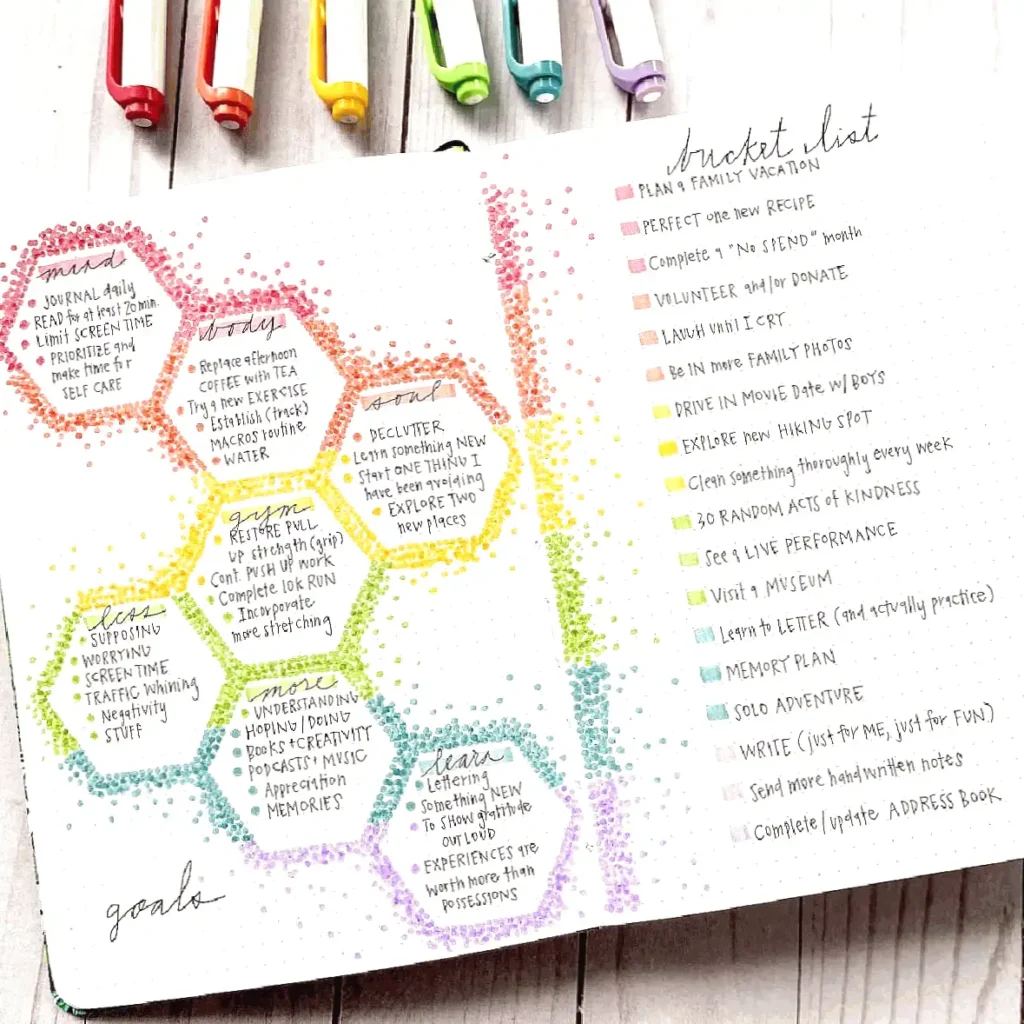 mind
JOURNAL daily
READ for at least 20 min.
Limit SCREEN TIME
PRIORITIZE and
make time for
SELF CARE
body
Replace afternoon
COFFEE with TEA
Try a new EXERCISE
Establish (track)
MACROS routine
WATER
soul
DECLUTTER
Learn something NEW
Start ONE THING I
have been avoiding
EXPLORE TWO
new places
gym
RESTORE PULL
UP strength (grip)
Cont. PUSH UP work
Complete 10K RUN
Incorporate
more stretching
less
SUPPOSING
WORRYING
SCREEN TIME
TRAFFIC Whining
Negativity
STUFF
more
UNDERSTANDING
HOPING / DOING
BOOKS + CREATIVITY
PODCASTS + MUSIC
Appreciation
MEMORIES
learn
Lettering
Something NEW
To SHOW gratitude
OUT LOUD
EXPERIENCES are
worth more than
POSSESSIONS
goals
bucket list
PLAN a FAMILY VACATION
PERFECT one new RECIPE
Complete a "No SPEND" month
VOLUNTEER and/or DONATE
LAUGH until I CRY
Be IN more FAMILY PHOTOS
DRIVE IN MOVIE Date w/ BOYS
EXPLORE new HIKING SPOT
Clean something thoroughly every week
30 RANDOM ACTS of KINDNESS
See a LIVE PERFORMANCE
Visit a MUSEUM
Learn to LETTER (and actually practice)
MEMORY PLAN
SOLO ADVENTURE
WRITE (just for ME, just for FUN)
Send more handwritten notes
Complete / update ADDRESS BOOK